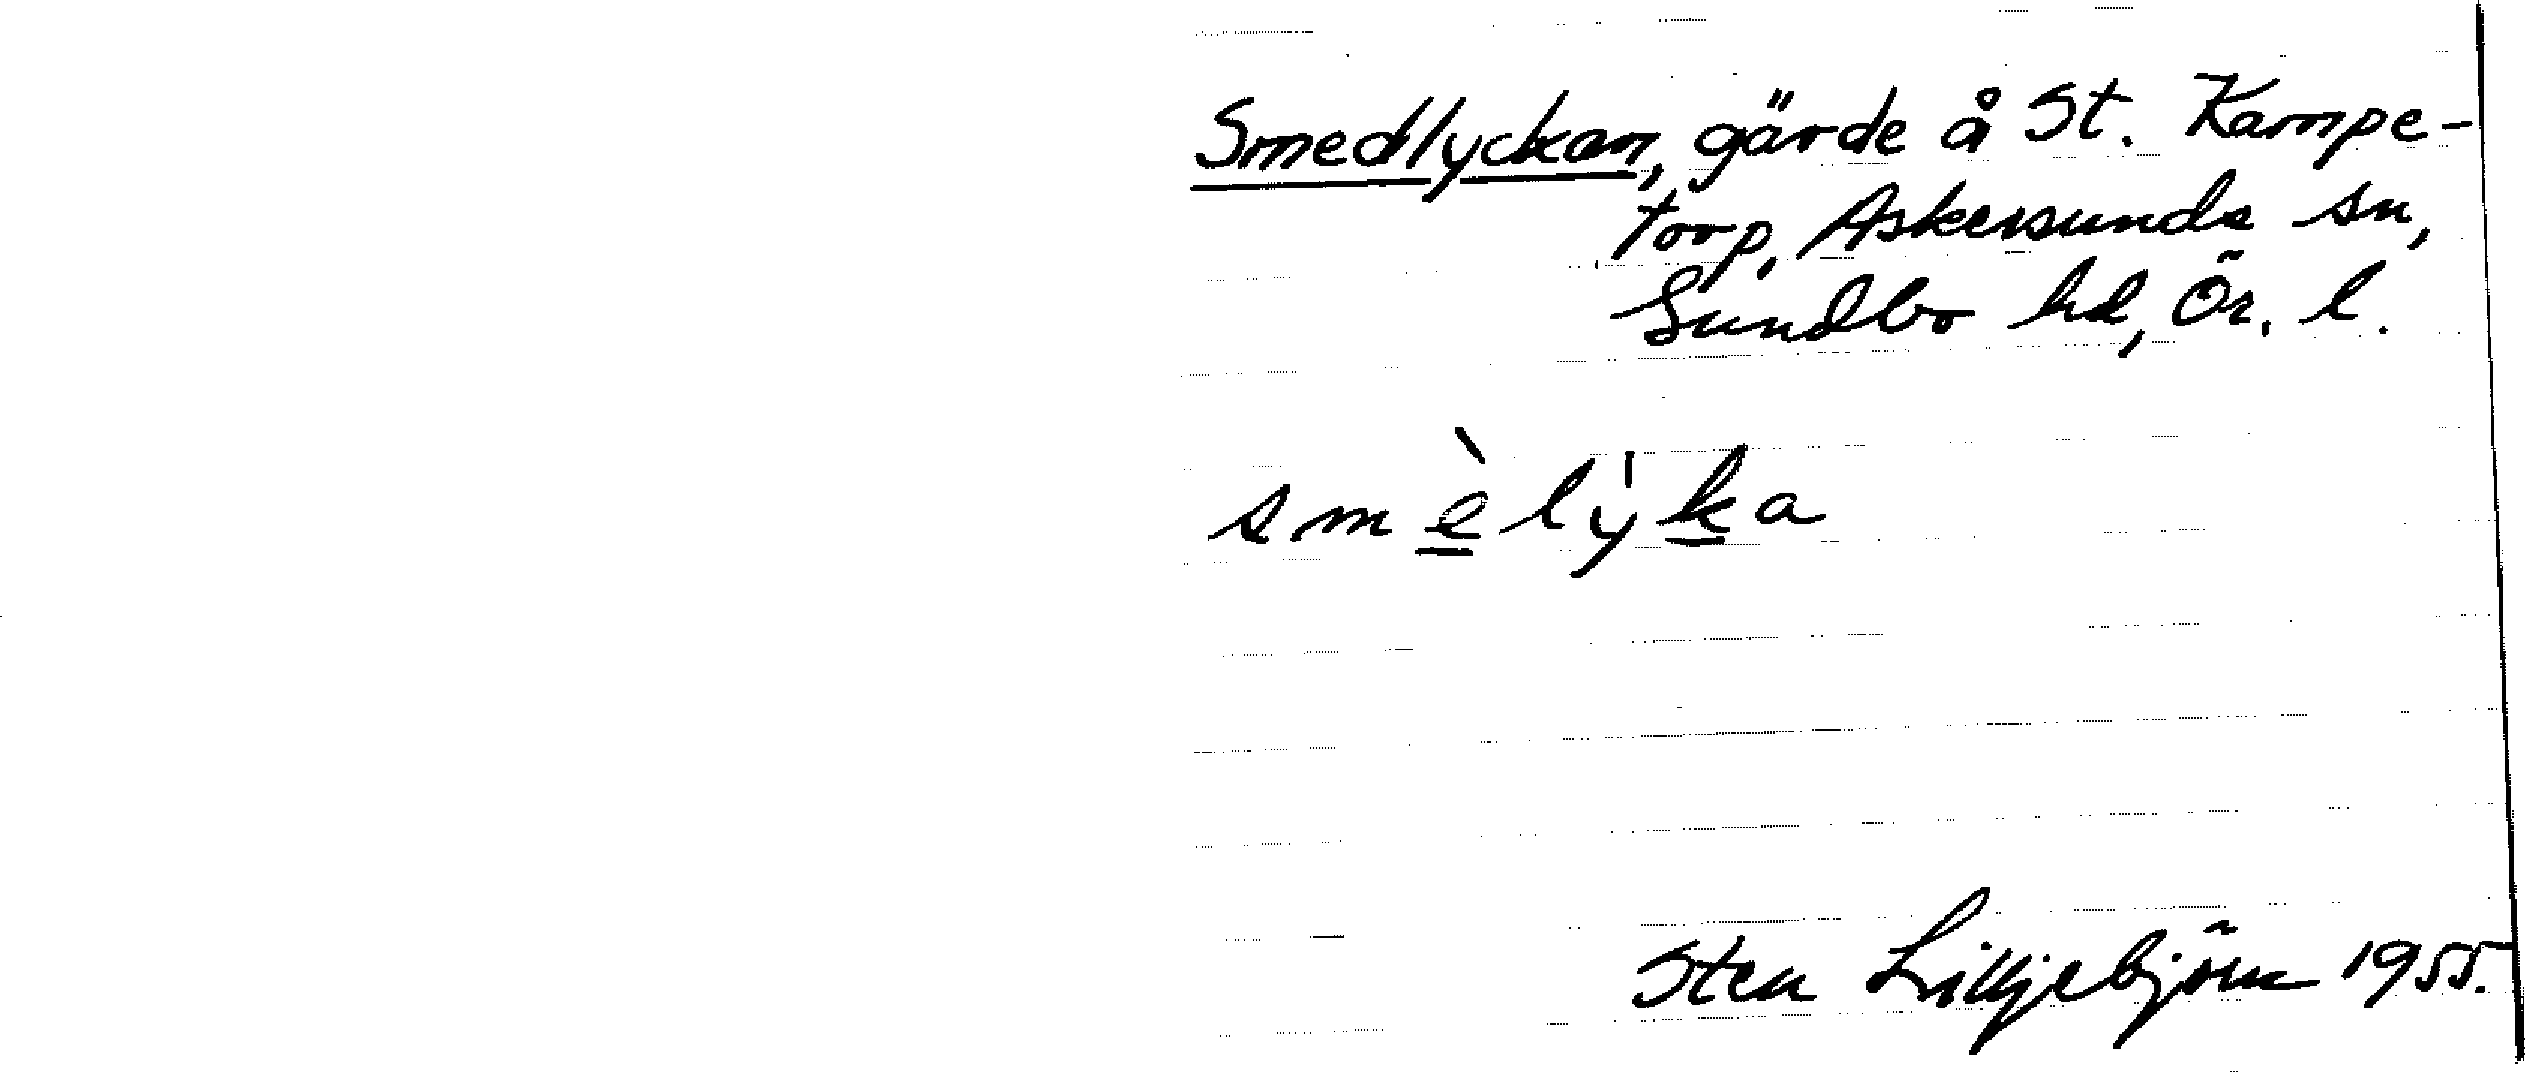 Smedlyckan, gärde å St. Kampe-
torp, Askersunds sn,
Sundbo hd, Ör. l.
smèlẏka
Sten Lilljebjörn 1955.